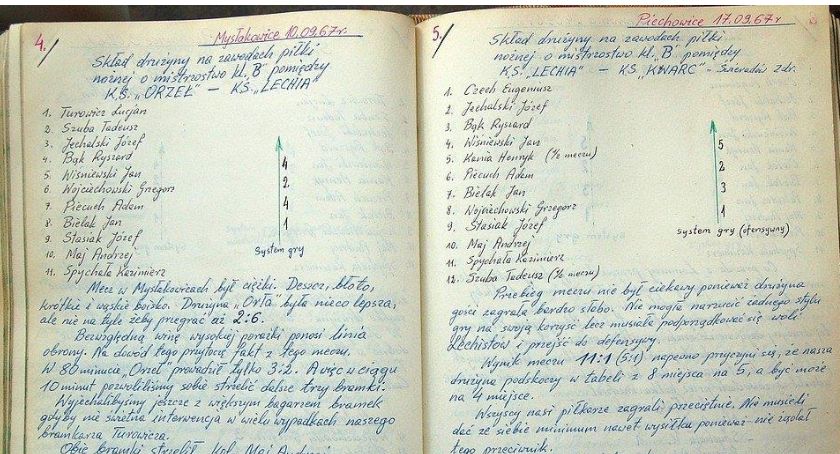 4.
Mysłakowice 10.09.67r.
Skład drużyny na zawodach piłki
nożnej o mistrzostwo kl. „B" pomiędzy
K.S. „ORZEŁ" — K.S. „LECHIA"
1. Turowicz Lucjan
2. Szuba Tadeusz
3. Jechalski Józef
4. Bąk Ryszard
5. Wiśniewski Jan
6. Wojciechowski Grzegorz
7. Piecuch Adam
8. Bielak Jan
9. Stasiak Józef
10. Maj Andrzej
11. Spychała Kazimierz
4
2
4
1
System gry
Mecz w Mysłakowicach był ciężki. Deszcz, błoto,
krótkie i wąskie boisko. Drużyna „Orła" była nieco lepsza,
ale nie na tyle żeby przegrać aż 2:6.
Bezwzględną winę wysokiej porażki ponosi linia
obrony. Na dowód tego przytoczę fakt z tego meczu.
W 80 minucie „Orzeł" prowadził tylko 3:2. A więc w ciągu
10 minut pozwoliliśmy sobie strzelić dalsze trzy bramki.
Wyjechalibyśmy jeszcze z większym bagażem bramek
gdyby nie świetna interwencja w wielu wypadkach naszego
bramkarza Turowicza.
Obie bramki strzelił kol. Maj Andrzej
5.
Piechowice 17.09.67r
Skład drużyny na zawodach piłki
nożnej o mistrzostwo kl. „B" pomiędzy
K.S. „LECHIA" — KS „KWARC" - Świeradów Zdr.
1. Czech Eugeniusz
2. Jechalski Józef
3. Bąk Ryszard
4. Wiśniewski Jan
5. Kania Henryk (½ meczu)
6. Piecuch Adam
7. Bielak Jan
8. Wojciechowski Grzegorz
9. Stasiak Józef
10. Maj Andrzej
11. Spychała Kazimierz
12. Szuba Tadeusz (½ meczu)
5
2
3
1
system gry (ofensywny)
Przebieg meczu nie był ciekawy ponieważ drużyna
gości zagrała bardzo słabo. Nie mogła narzucić żadnego stylu
gry na swoją korzyść lecz musiała podporządkować się woli
Lechistów i przejść do defensywy.
Wynik meczu 11:1 (5:1) napewno przyczyni się, że nasza
drużyna podskoczy w tabeli z 8 miejsca na 5, a być może
na 4 miejsce.
Wszyscy nasi piłkarze zagrali przeciętnie. Nie musieli
dać ze siebie minimum nawet wysiłku ponieważ nie żądał
tego przeciwnik.